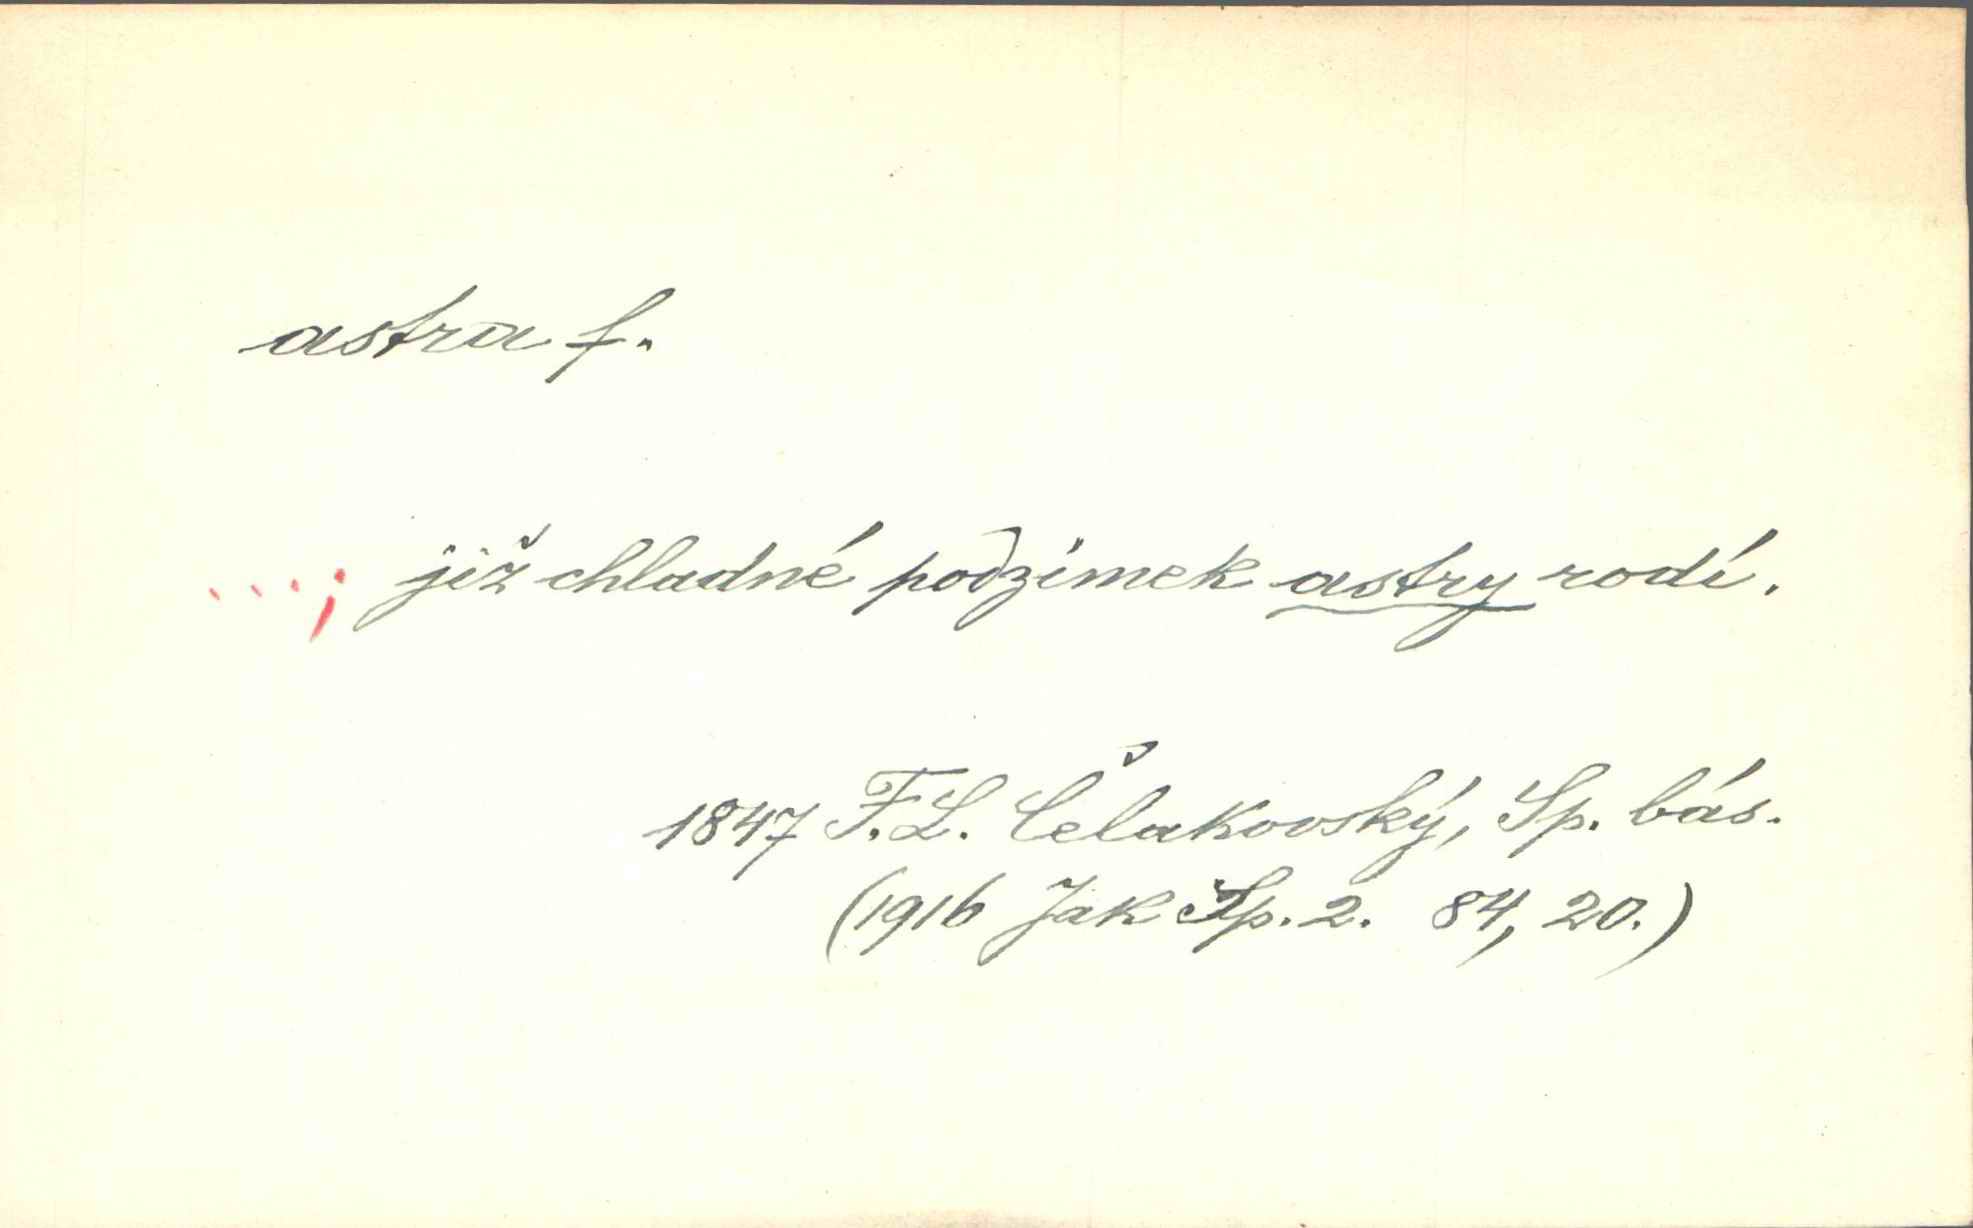 astra f.
...; již chladné podzimek astry rodí.
1847 F. L. Čelakovský, Sp. bás.
(1916 Jak Sp. 2. 84, 20.)